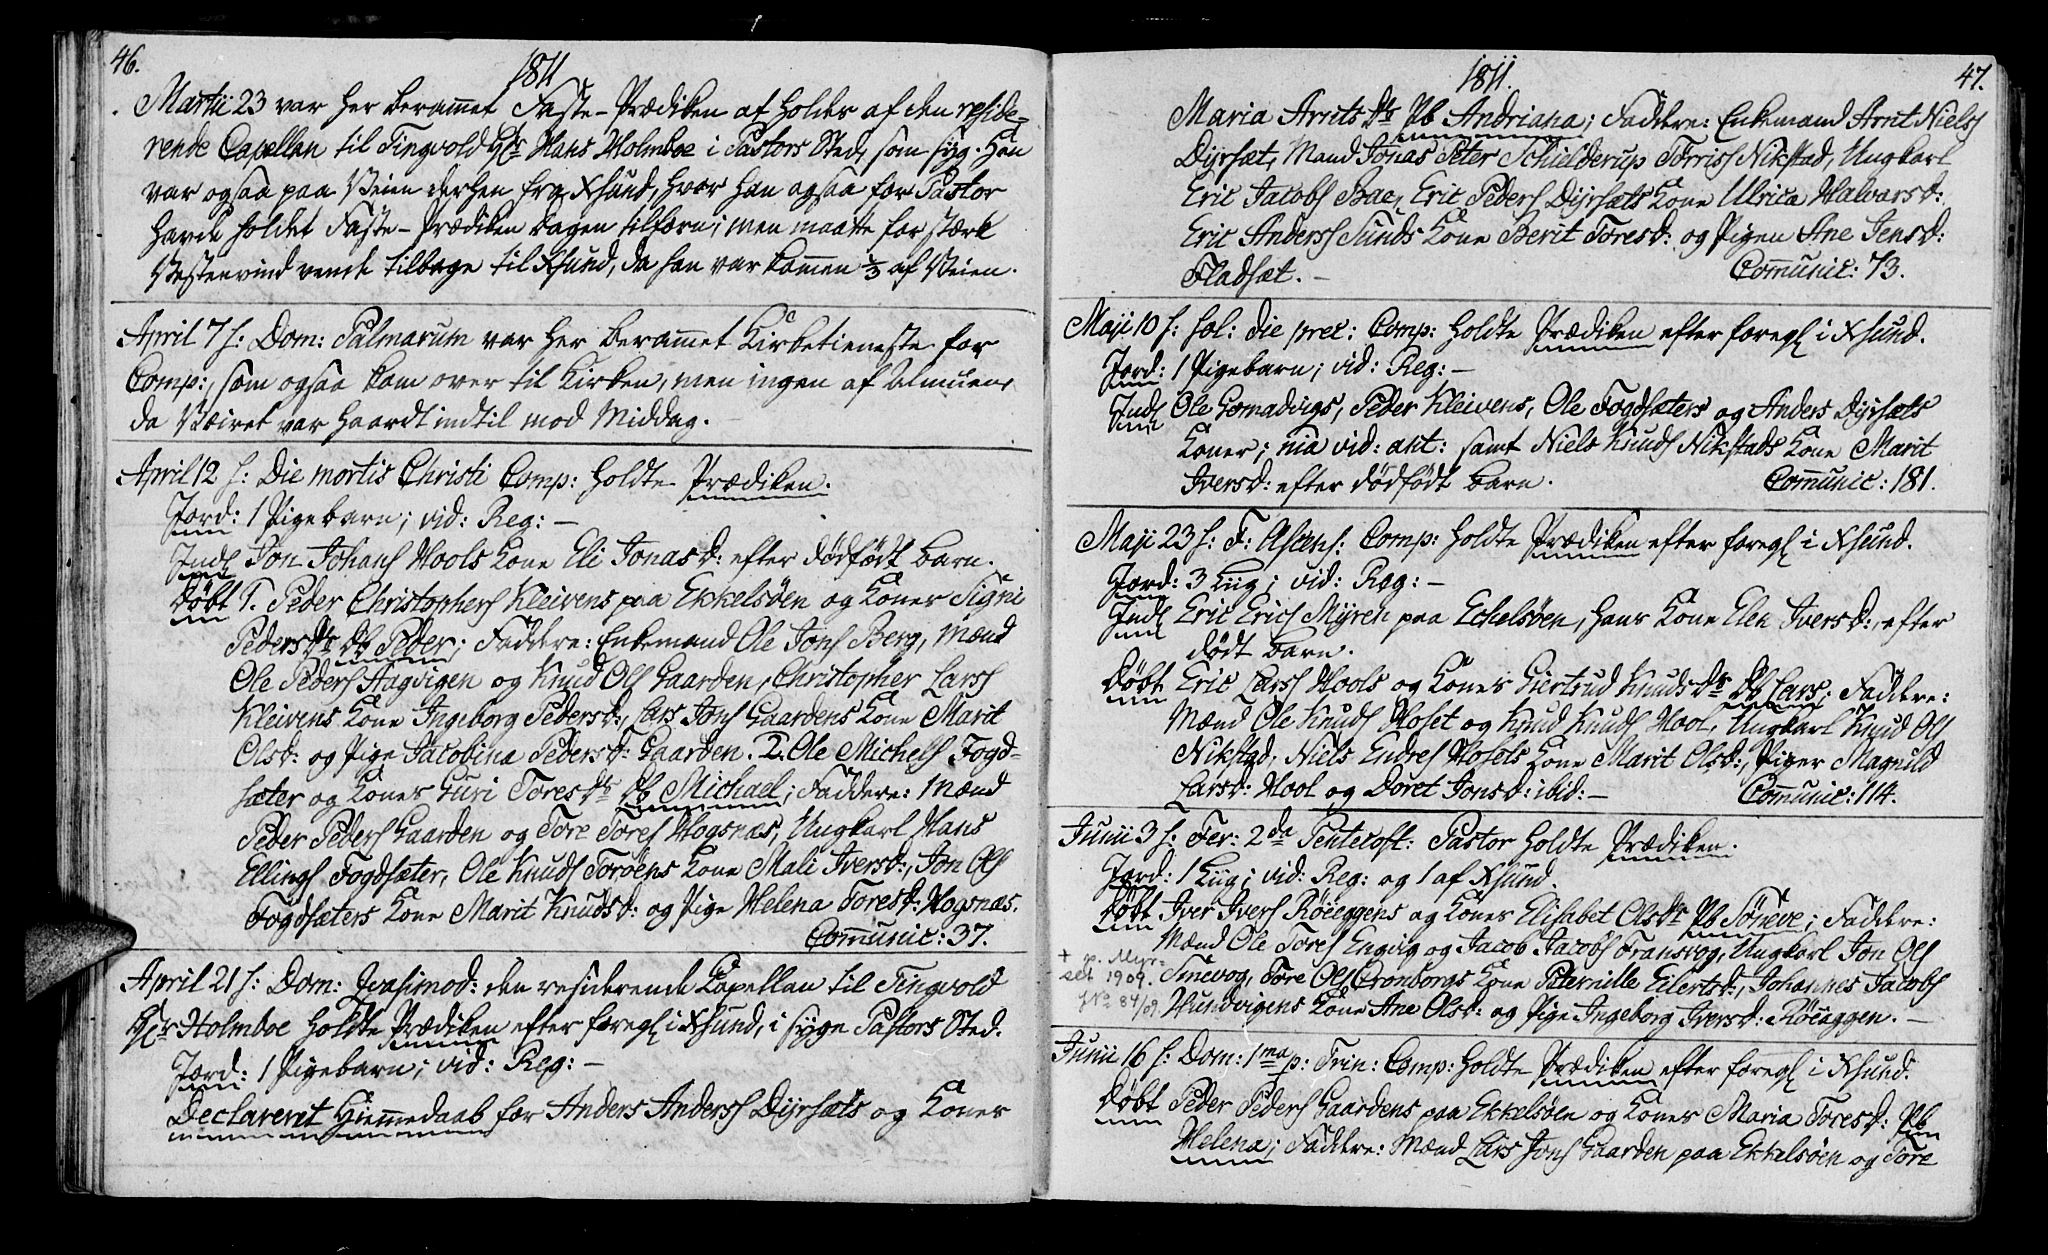 46.
1811
Martii 23 var her berammet Faste-Prædiken af holdes af den reside-
rende Capellan til Tingvold Hr Hans Holmboe i Pastors Sted, som syg. Han
var ogsaa paa Veien derhen fra Xsund, hvor han ogsaa for Pastor
havde holdet Faste-Prædiken dagen tilforn; men maatte for stærk
Vestenvind vende tilbage til Xsund, da han var kommen ⅓ af Veien.
April 7 s: Dom: Palmarum var her berammet Kirketieneste for
Comp:, som ogsaa kom over til Kirken, men ingen af Almuen,
da Væiret var haardt indtil mod Middag.
April 12 s: Die mortis Christi Comp: holdte Prædiken.
Jord: 1 Pigebarn; vid: Reg: —
Indl Jon Johans Hools Kone Eli Jonasd: efter dødfødt barn.
Døbt 1. Peder Christophers Kleivens paa Ekkelsöen og Kones Signi
Pedersdr Db Peder; Faddere: Enkemand Ole Jons Berg, Mænd
Ole Peders Aagvigen og Knud Ols Gaarden, Christopher Lars
Kleivens Kone Ingeborg Pedersd:, Lars Jons Gaardens Kone Marit
Olsd: og Pige Jacobina Pedersd: Gaarden. 2. Ole Michels Fogd-
sæter og Kones Guri Toresdr Db Michael; Faddere: Mænd
Peder Peders Gaarden og Tore Tores Hogsnæs, Ungkarl Hans
Ellings Fogdsæter, Ole Knuds Toröens Kone Mali Iversd:, Jon Ols
Fogdsæters Kone Marit Knudsd: og Pige Helena Toresd: Hogsnæs.
Communic: 37.
April 21 s: Dom: Qvasimod: den residerende Capellan til Tingvold
Hr Holmboe holdte Prædiken efter foregl i Xsund, i syge Pastors Sted.
Jord: 1 Pigebarn; vid: Reg: —
Declarerit Hiemmedaab for Anders Anders Dyrsæts og Kones
1811.
47.
Maria Arntsdr Pb Andriana; Faddere: Enkemand Arnt Niels
Dyrsæt, Mand Jonas Peter Schielderup Torriss Nikstad, Ungkarl
Eric Jacobs Bac, Eric Peders Dyrsæts Kone Ulrica Halvarsd:
Eric Anders Sunds Kone Berit Toresd: og Pigen Ane Jensd:
Fladsæt. — Communic: 73.
Maji 10 s: sol: die prec: Comp: holdte Prædiken efter foregl i Xsund.
Jord: 1 Pigebarn; vid: Reg: —
Indl Ole Gomadvigs, Peder Kleivens, Ole Fogdsæters og Anders Dyrsæts
Koner; nia vid: ant: samt Niels Knuds Nikstads Kone Marit
Iversd: efter dødfödt barn. Communic: 181.
Maji 23 s: F: Ascens: Comp: holdte Prædiken efter foregl i Xsund.
Jord: 3 Liig; vid: Reg: —
Indl Eric Erics Myren paa Echelsöen, hans Kone Elen Iversd:, efter
dödt barn.
Döbt Eric Lars Hools og Kones Giertrud Knudsdr Db Lars; Faddere:
Mænd Ole Knuds Hoset og Knud Knuds Hool, Ungkarl Knud Ols
Nikstad, Niels Endres Hosets Kone Marit Olsd:, Piger Magnild
Larsd: Hool og Doret Jonsd: ibid: — Communic: 114.
Junii 3 s: Fer: 2da Pentecost: Pastor holdte Prædiken.
Jord: 1 Liig; vid: Reg: og 1 af Xsund.
Döbt Iver Ivers Röeggens og Kones Elisabet Olsdr Pb Söneve; Faddere:
Mænd Ole Tores Engvig og Jacob Jacobs Fransvog, Ungkarl Jon Ols
+ p. Myr-
set 1909.
J.№ 84/09
Smevog, Tore Ols Cronborgs Kone Peternille Eilertsd:, Johannes Jacobs
Hundvigens Kone Ane Olsd: og Pige Ingeborg Iversd: Röeaggen. —
Junii 16 s: Dom: 1ma p: Trin: Comp: holdte Prædiken efter foregl i Xsund.
Döbt Peder Peders Gaardens paa Ekkelsöen og Kones Maria Toresd: Pb
Helena; Faddere: Mænd Lars Jons Gaarden paa Ekkelsöen og Tore